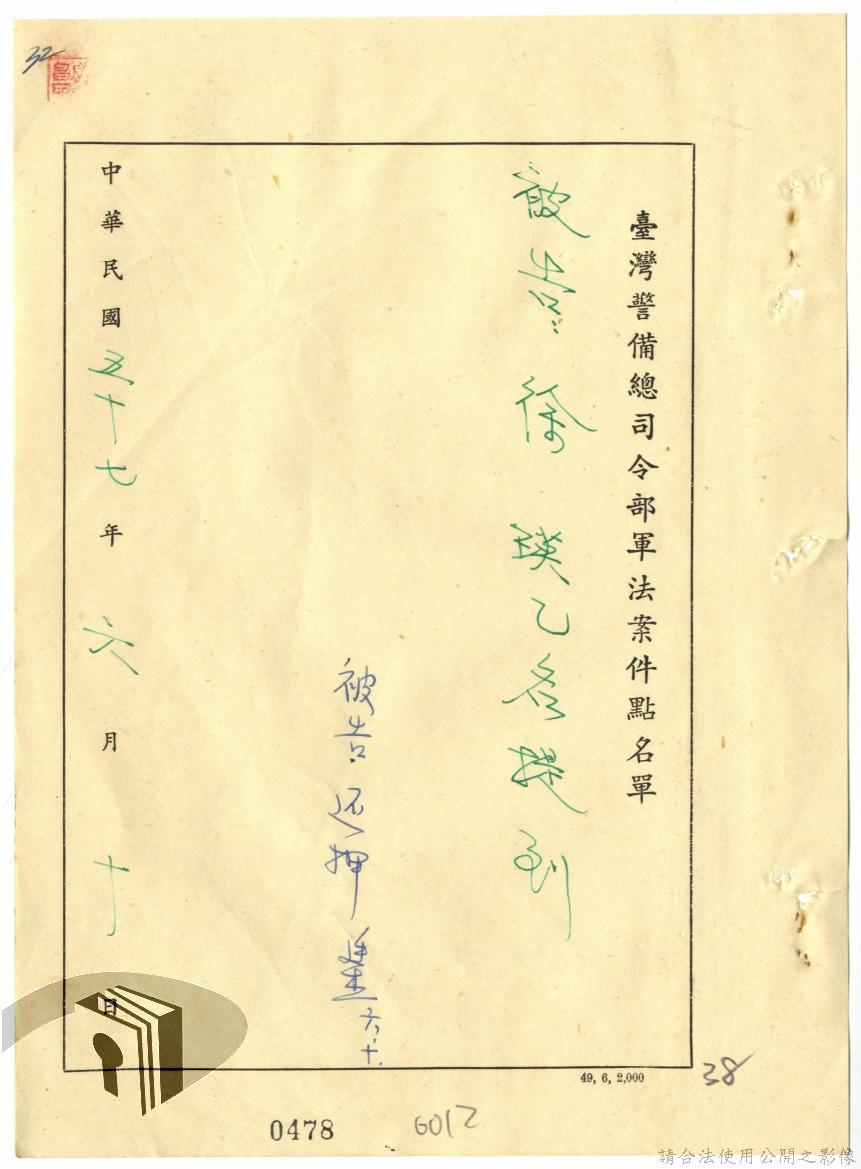 臺灣警備總司令部軍法案件點名單
被告徐瑛乙名提到
被告还押 六、十.
中華民國五十七年六月十日
49, 6, 2,000
32
38
0478
6012
請合法使用公開之影像